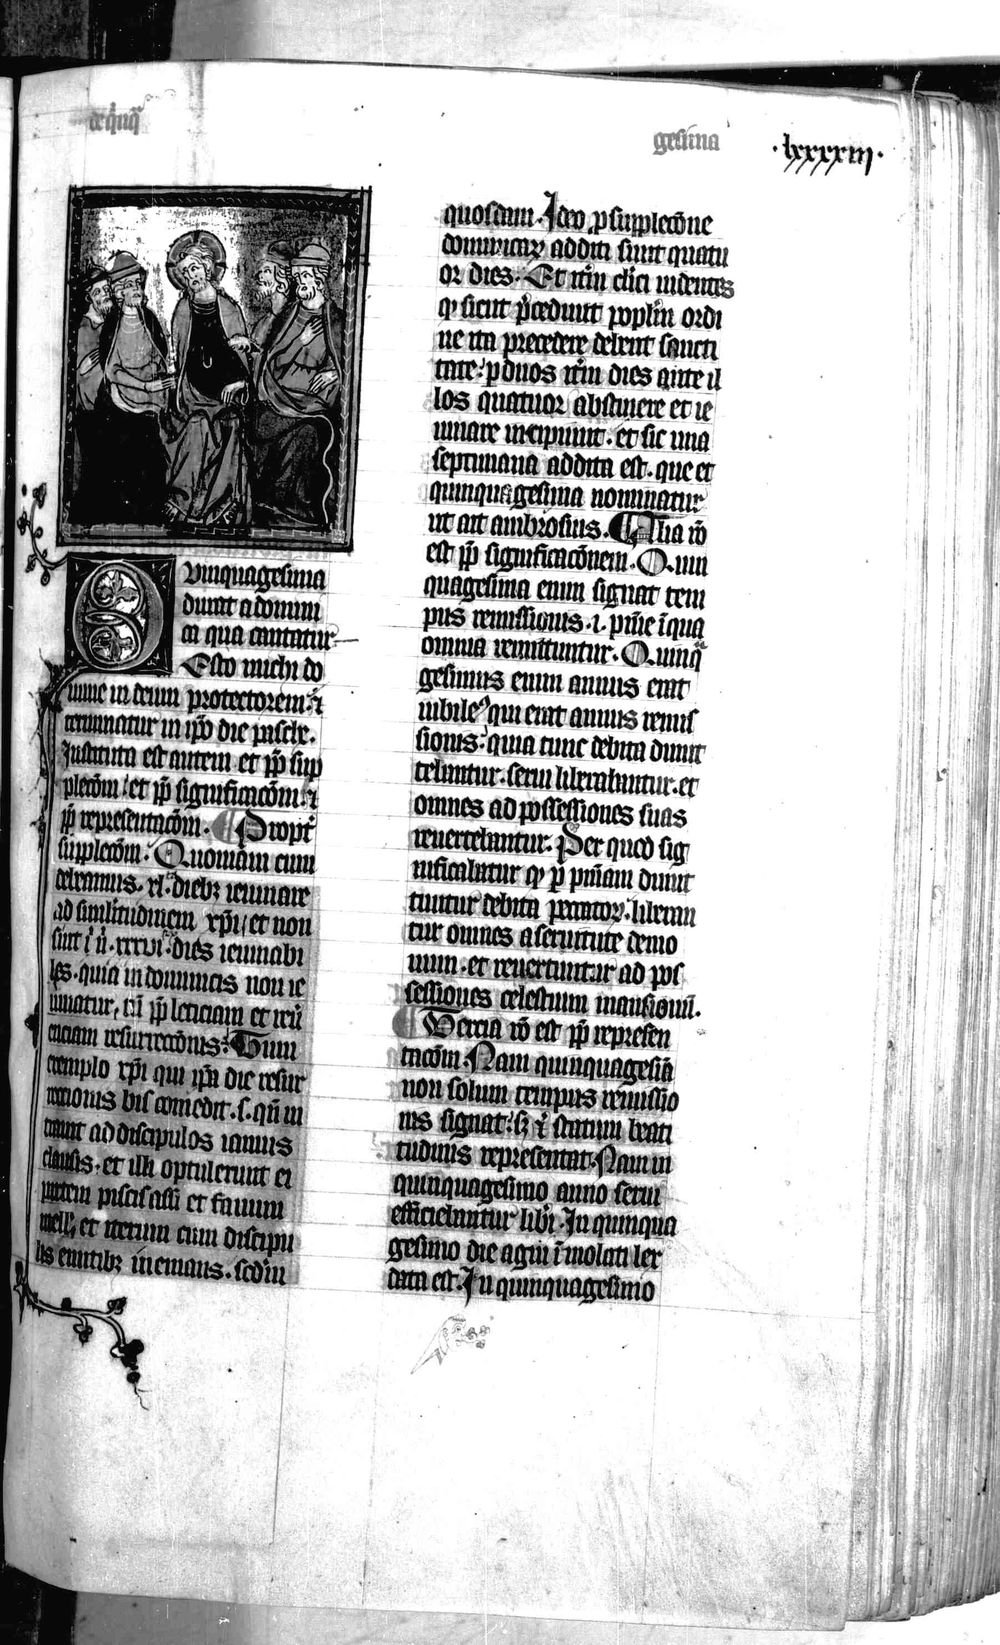 de q̇nq̄
gesima
.lxxxxiii.
Vinquagesima
durat a domini
ca qua cantatur
Esto michi do
mine in deum protectorem. ⁊
terminatur in ip̄o die pasche.
Instituta est autem et pp̄ sup
plecōm / et pp̄ significacōm. ⁊
pp̄ representacōm. ¶ Propt̓
supplecōm. Quoniam cum
debeamus .xl. dieb; ieiunare
ad similitudinem xp̄i / et non
sint ī ií .xxxvi. dies ieiunabi
les. quia in dominicis non ie
iunatur, tū pp̄ leticiam et reū
enciam resurrecōnis. Tum
exemplo xp̄i qui ip̄a die resur
rectionis bis comedit .s. qn̄ in
trauit ad discipulos ianuis
clausis. et illi optulerunt ei
partem piscis assi et fauum
mell̓, et iterum cum discipu
lis euntib; in emaus. sed̓m
quosdam. Ideo p suplecōne
dominicaꝝ additi sunt quatu
or dies. Et itm̄ cl̓ici uidentes
ꝙ sicut p̄cedunt poplm̄ ordi
ne ita precedere debent sancti
tate: p duos itm̄ dies ante il
los quatuor abstinere et ie
iunare incipiunt. et sic una
septimana addita est. que et
quinquagesima nominatur
ut ait ambrosius. ¶ Alia uō
est pp̄ significacōnem. Quin
quagesima enim signat tem
pus remissionis .i. pn̄ie ī qua
omnia remittuntur. Quinq̄
gesimus enim annus erat
iubileꝰ qui erat annus remis
sionis: quia tunc debita dimit
tebantur. serui liberabantur. et
omnes ad possessiones suas
reuertebantur. Per quod sig
nificabatur ꝙ p pn̄iam dimit
tuntur debita peccatoꝝ. liberan
tur omnes a seruitute demo
num. et reuertuntur ad pos
sessiones celestium mansionū.
¶ Tercia uō est pp̄ represen
tacōm. Nam quinquagesiā
non solum tempus remissio
nis signat: s; ⁊ statum beati
tudinis representat. Nam in
quinquagesimo anno serui
efficiebantur lib̓i. In quinqua
gesimo die agni īmolati lex
data est. In quinquagesimo